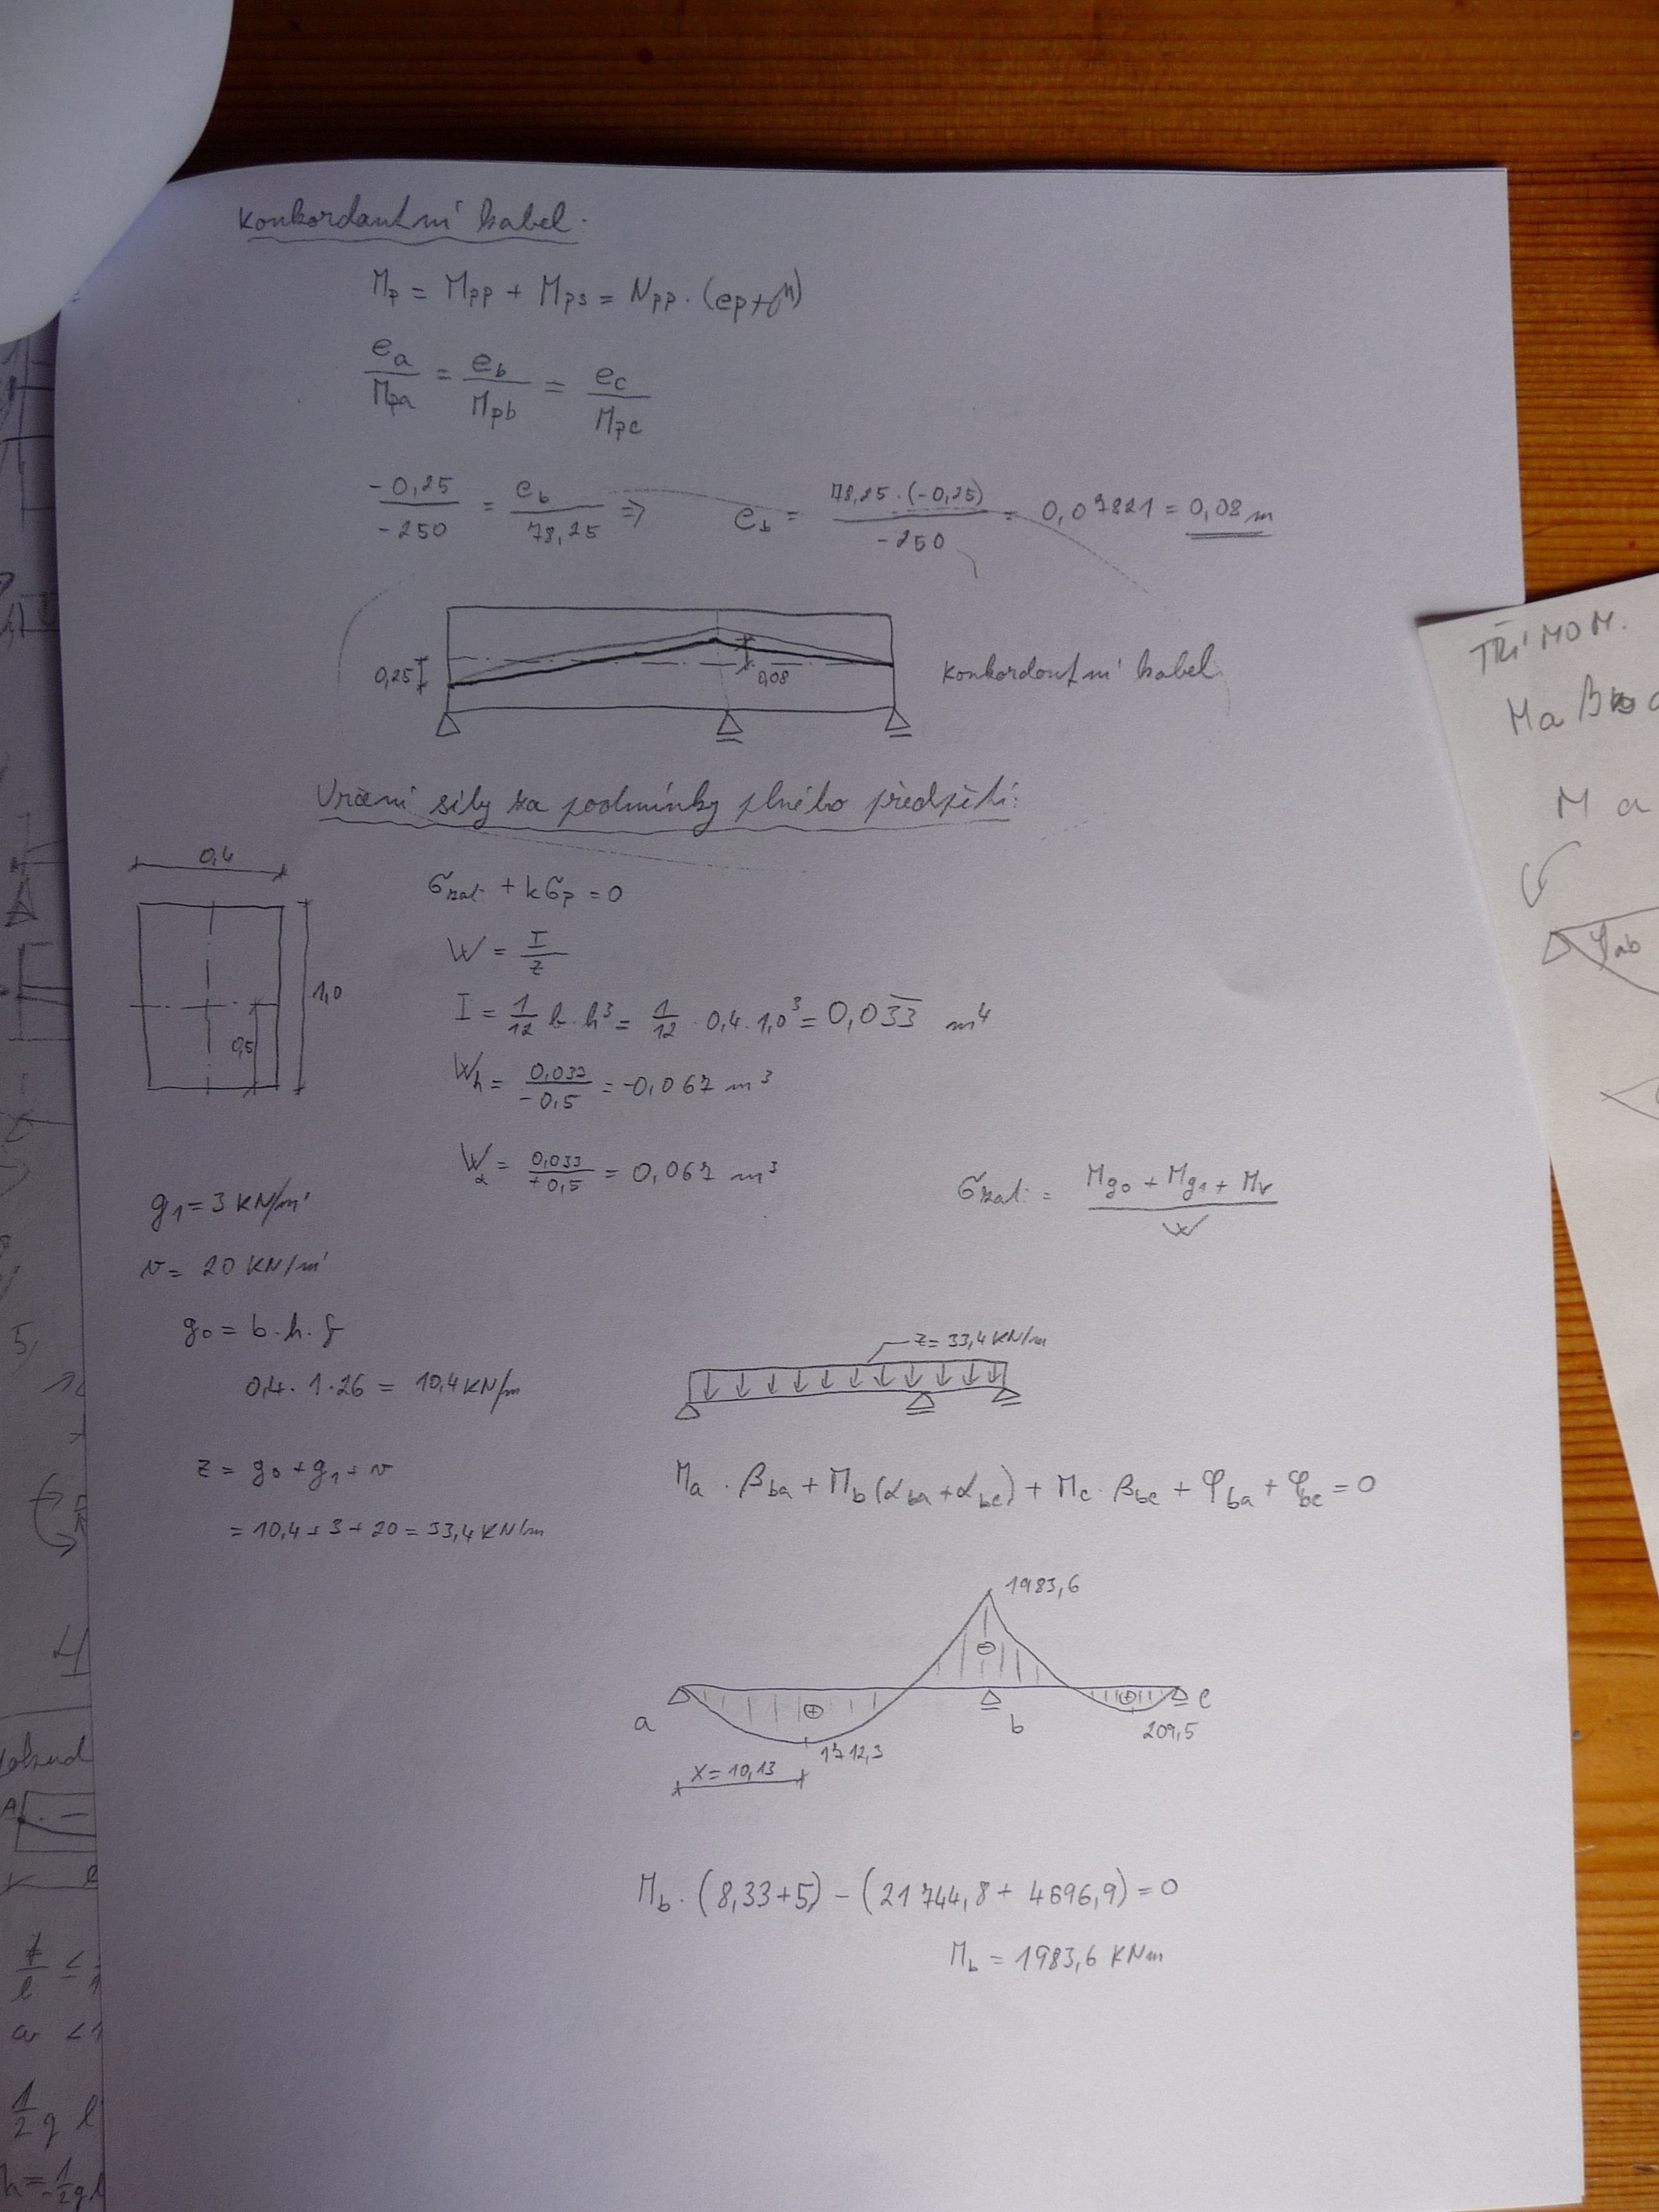 Konkordantní kabel.
Mp = Mpp + Mps = Npp · (ep+
ea/Mpa = eb/Mpb = ec/Mpc
-0,25/-250 = eb/78,25 => eb = 78,25·(-0,25)/-250 = 0,07821 = 0,08 m
0,25
0,08
Konkordantní kabel
Určení síly za podmínky plného předpětí:
0,4
1,0
0,5
σzat. + kσp = 0
W = I/z
I = 1/12 b·h³ = 1/12 · 0,4·1,0³ = 0,033 m⁴
Wh = 0,033/-0,5 = -0,067 m³
Wd = 0,033/+0,5 = 0,067 m³
σzat. = Mg0 + Mg1 + Mv/W
g1 = 3 KN/m'
v = 20 KN/m'
g0 = b·h·γ
0,4·1·26 = 10,4 KN/m
z = 33,4 KN/m
z = g0 + g1 + v
= 10,4 + 3 + 20 = 33,4 KN/m
Ma · βba + Mb (αba + αbc) + Mc · βbc + φba + φbc = 0
1983,6
a
b
c
1712,3
209,5
x = 10,13
Mb · (8,33+5) - (21744,8 + 4696,9) = 0
Mb = 1983,6 KNm
TŘÍMOM.
Ma β
M a
φab
5,
4
A
l
≤
l
<1
1/2 g l
h = -1/2 g l